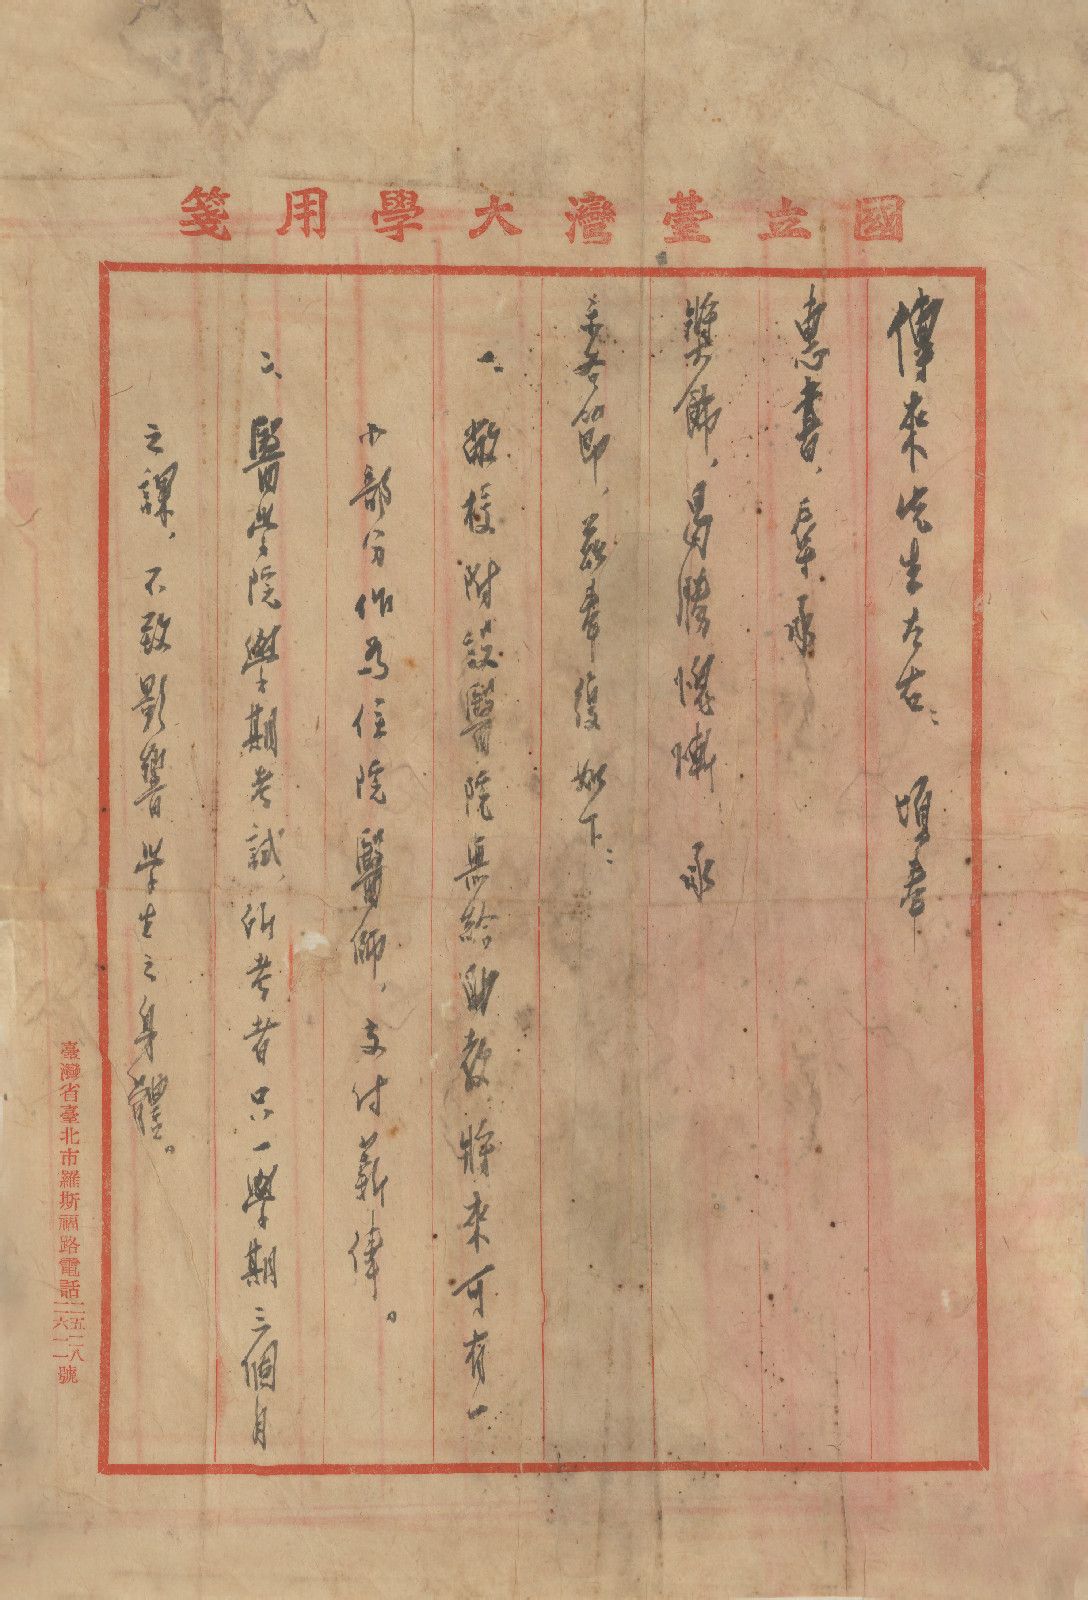 國立臺灣大學用箋
傳來先生左右：頃奉
惠書，辱承
獎飾，曷勝慚 承
示各節，茲奉復如下：
一、敝校附設醫院無給助教，將來可有一
小部分作為住院醫師，支付薪俸。
二、醫學院學期考試，所考者只一學期三個月
之課，不致影響學生之身體。
臺灣省臺北市羅斯福路電話二五二八
二六一一號